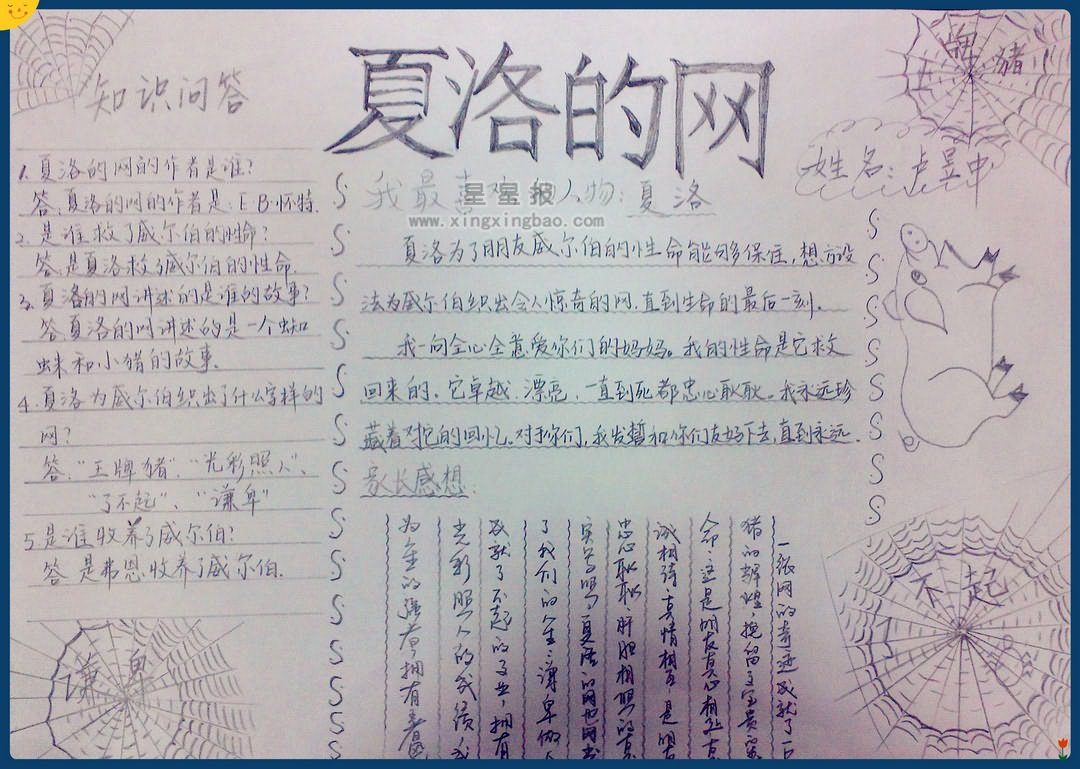 夏洛的网
王牌猪
姓名:卢昱中
知识问答
1.夏洛的网的作者是谁?
答:夏洛的网的作者是:E·B·怀特.
2.是谁救了威尔伯的性命?
答:是夏洛救了威尔伯的性命.
3.夏洛的网讲述的是谁的故事?
答:夏洛的网讲述的是一个蜘
蛛和小猪的故事.
4.夏洛为威尔伯织出了什么字样的
网?
答:“王牌猪”、“光彩照人”、
“了不起”、“谦卑”
5.是谁收养了威尔伯?
答:是弗恩收养了威尔伯.
我最喜欢的人物:夏洛
星星报
www.xingxingbao.com
夏洛为了朋友威尔伯的性命能够保住,想方设
法为威尔伯织出令人惊奇的网,直到生命的最后一刻.
我一向全心全意爱你们的妈妈。我的性命是它救
回来的。它卓越.漂亮,一直到死都忠心耿耿。我永远珍
藏着对它的回忆。对于你们,我发誓和你们友好下去,直到永远.
家长感想:
一张网的奇迹成就了一只
猪的辉煌,挽留了宝贵
命,这是朋友真心相
诚相待、真情相
忠心耿耿、肝胆相照的
夏洛的网也网
了我们的人生:谦卑做人
成就了不起的事业,拥有
光彩照人的成绩,成
为生的强者,拥有
谦卑
了不起